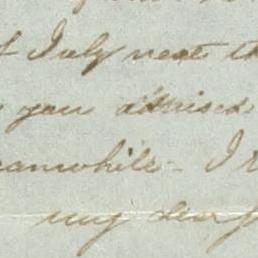 of July next th
you advised
eanwhile - I
my dear